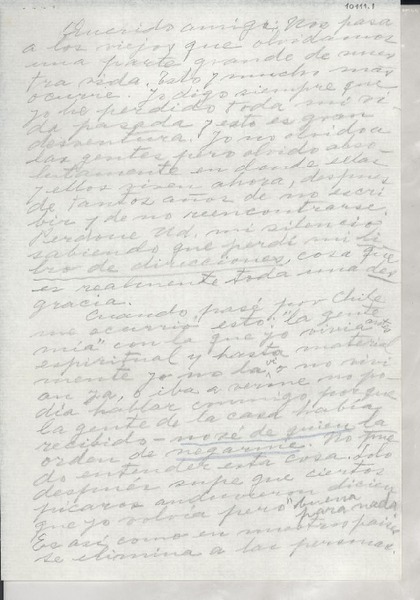 10111.1
Querido amigo: Nos pasa
a los viejos que olvidamos
una parte grande de nues
tra vida. Esto y mucho más
ocurre. Yo digo siempre que
yo he perdido toda mi vi
da pasada. Y esto es gran
desventura. Yo no olvido a
las gentes, pero olvido abso-
lutamente en donde ellas
y ellos viven ahora, después
de tantos años de no escri
bir y de no reencontrarse.
Perdone Ud. mi silencio
sabiendo que perdí mi li
bro de direcciones, cosa que
es realmente toda una des
gracia.
Cuando pasé por Chile
me ocurrió esto: "la gente
mía" con la que yo viví
espiritual y hasta material
mente yo no la vi o no viví
an ya, o iba a verme no po
día hablar conmigo porque
la gente de la casa había
recibido - no sé de quien la
orden de negarme. No pue
do entender esta cosa. Solo
después supe que ciertos
pícaros anduvieron dicien
que yo volvía pero "buena
para nada
Es así como en nuestro país
se elimina a las personas.